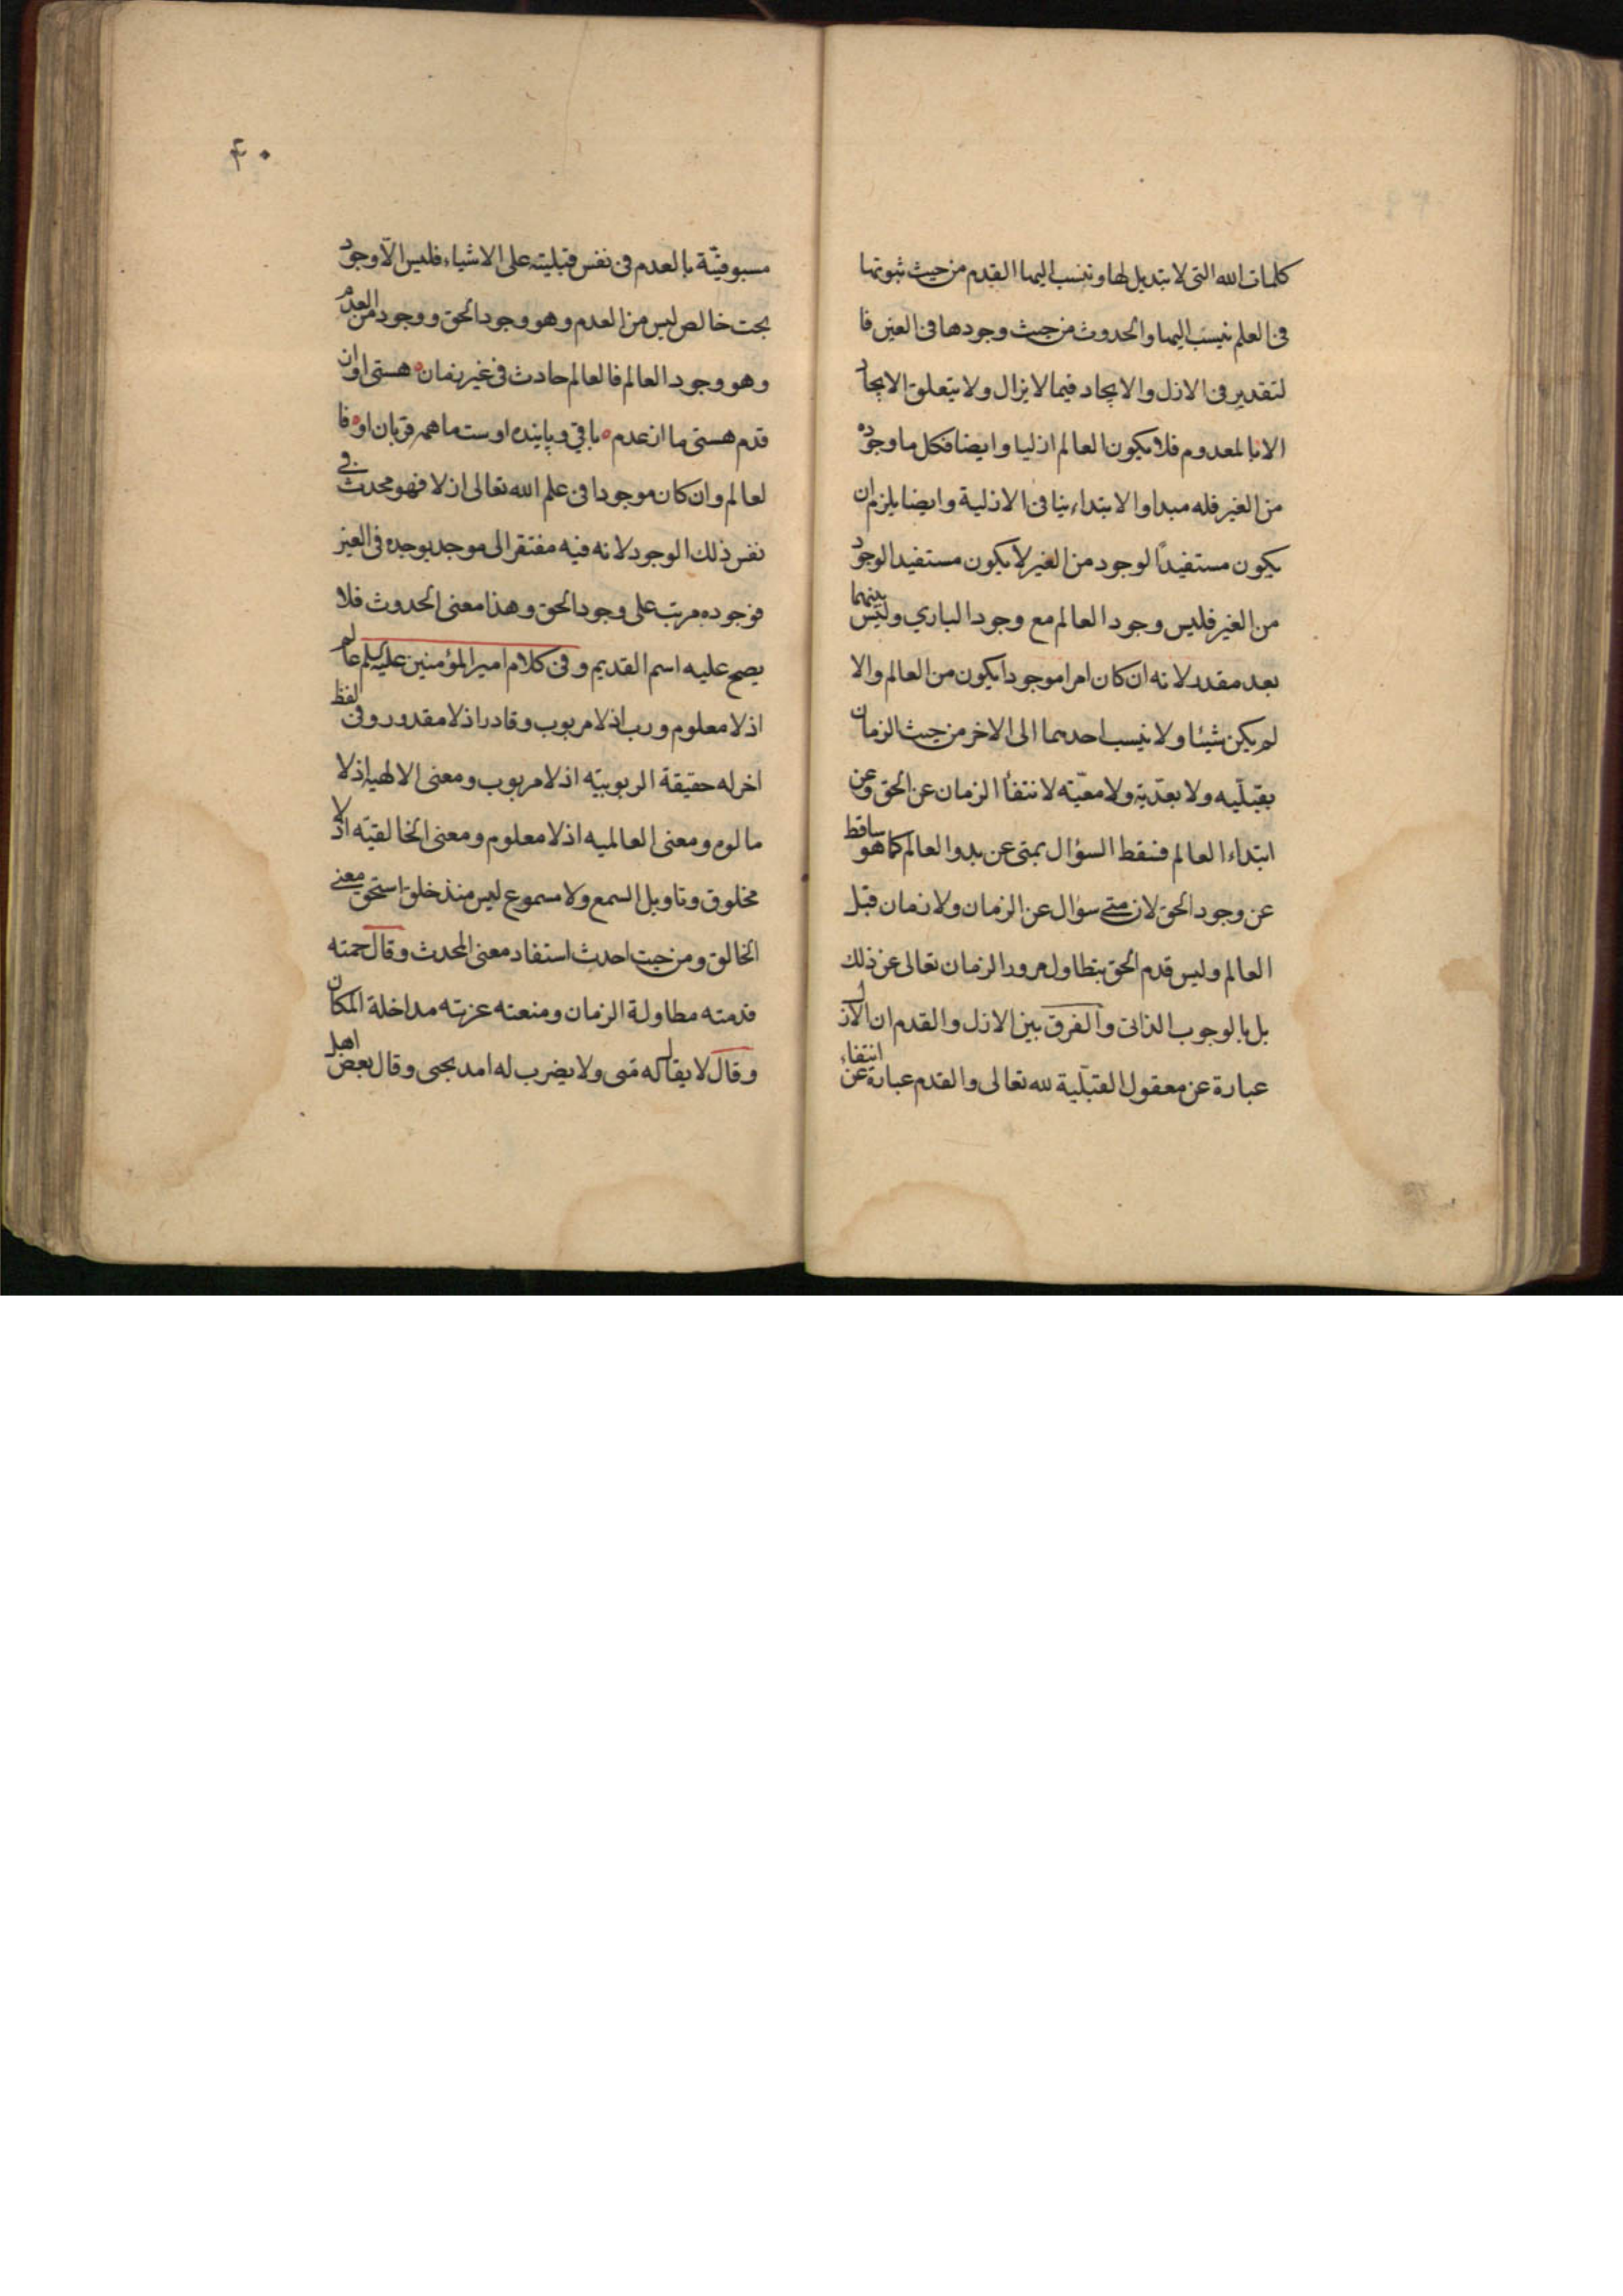 كلمات الله التى لا تبديل لها وتنسب اليها القدم من حيث ثبوتها
فى العلم ينسب اليها والحدوث من حيث وجودها فى العين فا
لتقدير فى الازل والايجاد فيما لا يزال ولا يتعلق الايجاد
الا بالمعدوم فلا يكون العالم ازليا وايضا فكل ما وجوده
من الغير فله مبدا والابتداء ينا فى الازلية وايضا يلزم ان
يكون مستفيداً لوجود من الغير لا يكون مستفيدا لوجود
من الغير فليس وجود العالم مع وجود الباري وليس بينهما
بعد مقدر لانه ان كان امرا موجودا يكون من العالم والا
لم يكن شيئا ولا ينسب احدهما الى الاخر من حيث الزمان
بقبليه ولا بعديه ولا معيّته لانتفأ الزمان عن الحق وعن
ابتداء العالم فسقط السؤال بمتى عن بدو العالم كما هو ساقط
عن وجود الحق لان متى سؤال عن الزمان ولا زمان قبل
العالم وليس قدم الحق بتطاول مرور الزمان تعالى عن ذلك
بل بالوجوب الذاتى والفرق بين الازل والقدم ان الازل
عبارة عن معقول القبليّة لله تعالى والقدم عبارة عن انتفاء
۴۰
مسبوقيّة بالعدم فى نفس قبليته على الاشياء فليس الّا وجود
بحت خالص ليس من العدم وهو وجود الحق ووجود من العدم
وهو وجود العالم فالعالم حادث فى غير زمان ه هستى او ان
قدم هستى ما از عدم ه باقي و پاينده اوست ما همه قربان او ه فا
لعالم وان كان موجودا فى علم الله تعالى ازلا فهو محدث في
نفس ذلك الوجود لانه فيه مفتقر الى موجد يوجده فى العين
فوجوده مرتب على وجود الحق وهذا معنى الحدوث فلا
يصح عليه اسم القديم وفى كلام امير المؤمنين عليه سلم عالم
اذ لا معلوم ورب اذ لا مربوب وقادر اذ لا مقدور وفى لفظ
اخر له حقيقة الربوبيّه اذ لا مربوب ومعنى الالهيه اذ لا
مالوم ومعنى العالميه اذ لا معلوم ومعنى الخالقيّه اذ لا
مخلوق وتاويل السمع ولا مسموع ليس منذ خلق استحق معنى
الخالق ومن حيث احدث استفاد معنى المحدث وقال حمته
قدمته مطاولة الزمان ومنعته عزته مداخلة المكان
وقال لا يقال له متى ولا يضرب له امد بحتى وقال بعض اهل